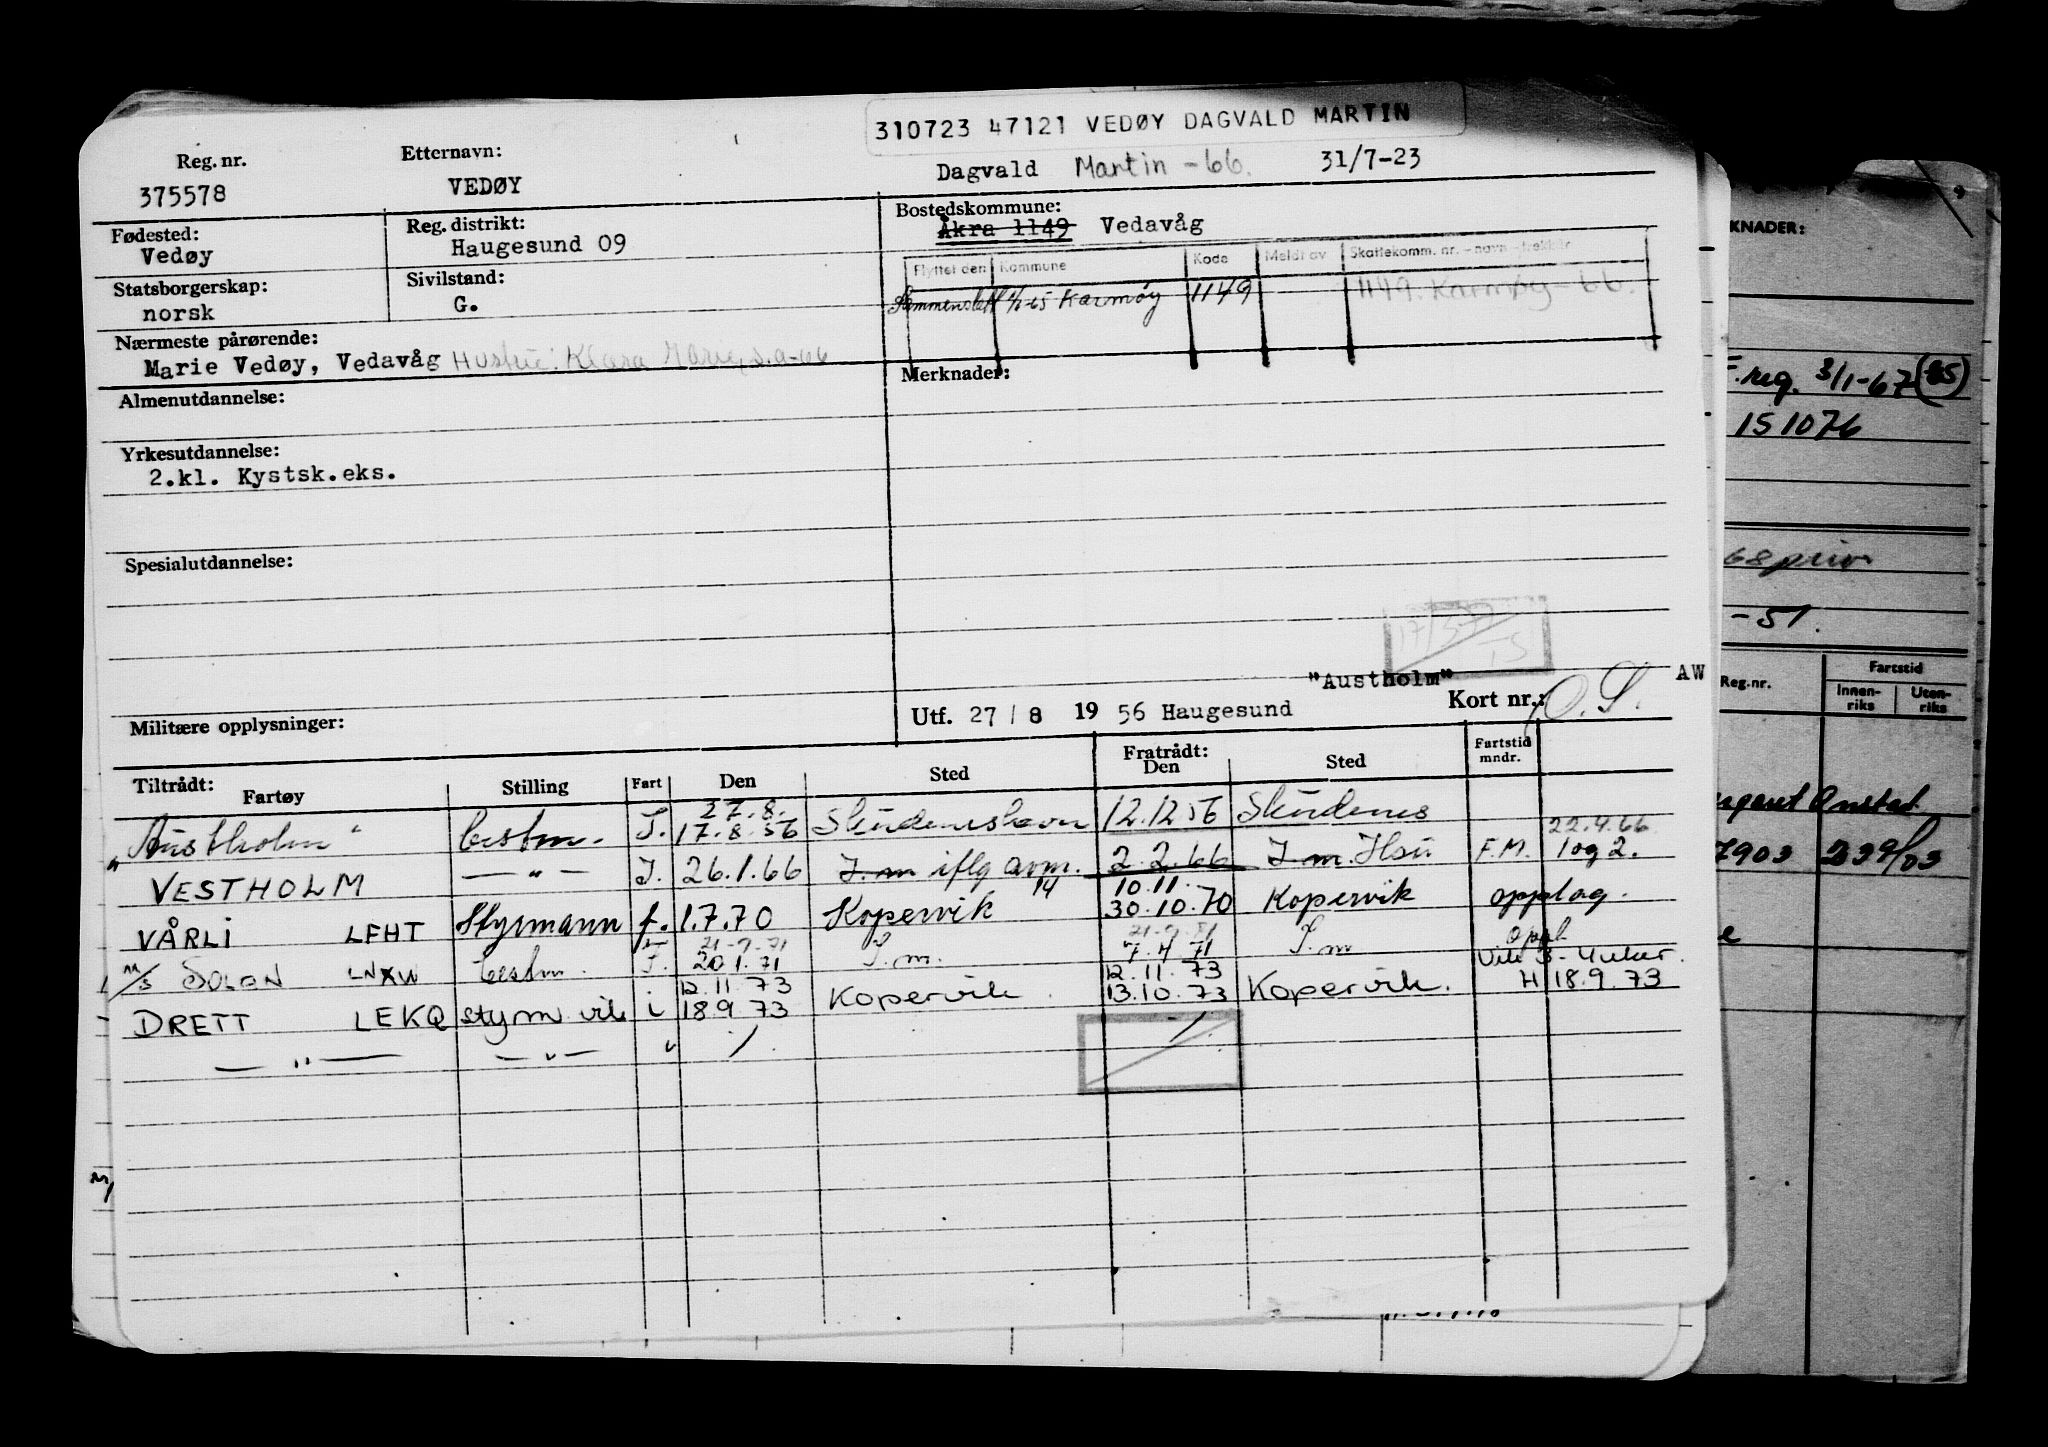 310723 47121 VEDØY DAGVALD MARTIN
Reg. nr. Etternavn:
375578 VEDØY Dagvald Martin - 66. 31/7-23
Fødested: Reg. distrikt: Bostedskommune:
Vedøy Haugesund 09 Åkra 1149 Vedavåg
Statsborgerskap: Sivilstand: Flyttet den Kommune Kode Meldt av Skattekomm. nr. - navn - trekkår
norsk G. Sammenslått 1/1-65 Karmøy 1149 1149. Karmøy - 66.
Nærmeste pårørende:
Marie Vedøy, Vedavåg Hustru: Klara Marie, s.a-66
Almenutdannelse: Merknader:
Yrkesutdannelse:
2.kl. Kystsk.eks.
Spesialutdannelse:
"Austholm" AW
Militære opplysninger: Utf. 27/8 1956 Haugesund Kort nr.: O.S.
Tiltrådt: Fratrådt:
Fartøy Stilling Fart Den Sted Den Sted Fartstid mndr.
27.8.
"Austholm" bestm. I. 17.8.56 Skudeneshavn 12.12 56 Skudenes
22.4.66
VESTHOLM — " — I. 26.1.66 I.m iflg avm. 2.2.66 I.m. F.M. 1 og 2.
14 10.11.
VÅRLI LFHT Styrmann f. 1.7.70 Kopervik 30.10.70 Kopervik opplag.
21-9-71 oppl
M/S SOLON LNXW bestm. I. 20 1.71 I.m. 7.4 71 I.m Vik 3-4 uker.
12.11.73 12.11.73
DRETT LEKQ styrm vik i 18 9 73 Kopervik. 13.10.73 Kopervik. H 18.9.73
— " — — " — " /. /.
KNADER:
F.reg. 3/1-67
151076
- 51.
Reg.nr. Fartstid
Innenriks Utenriks
7903